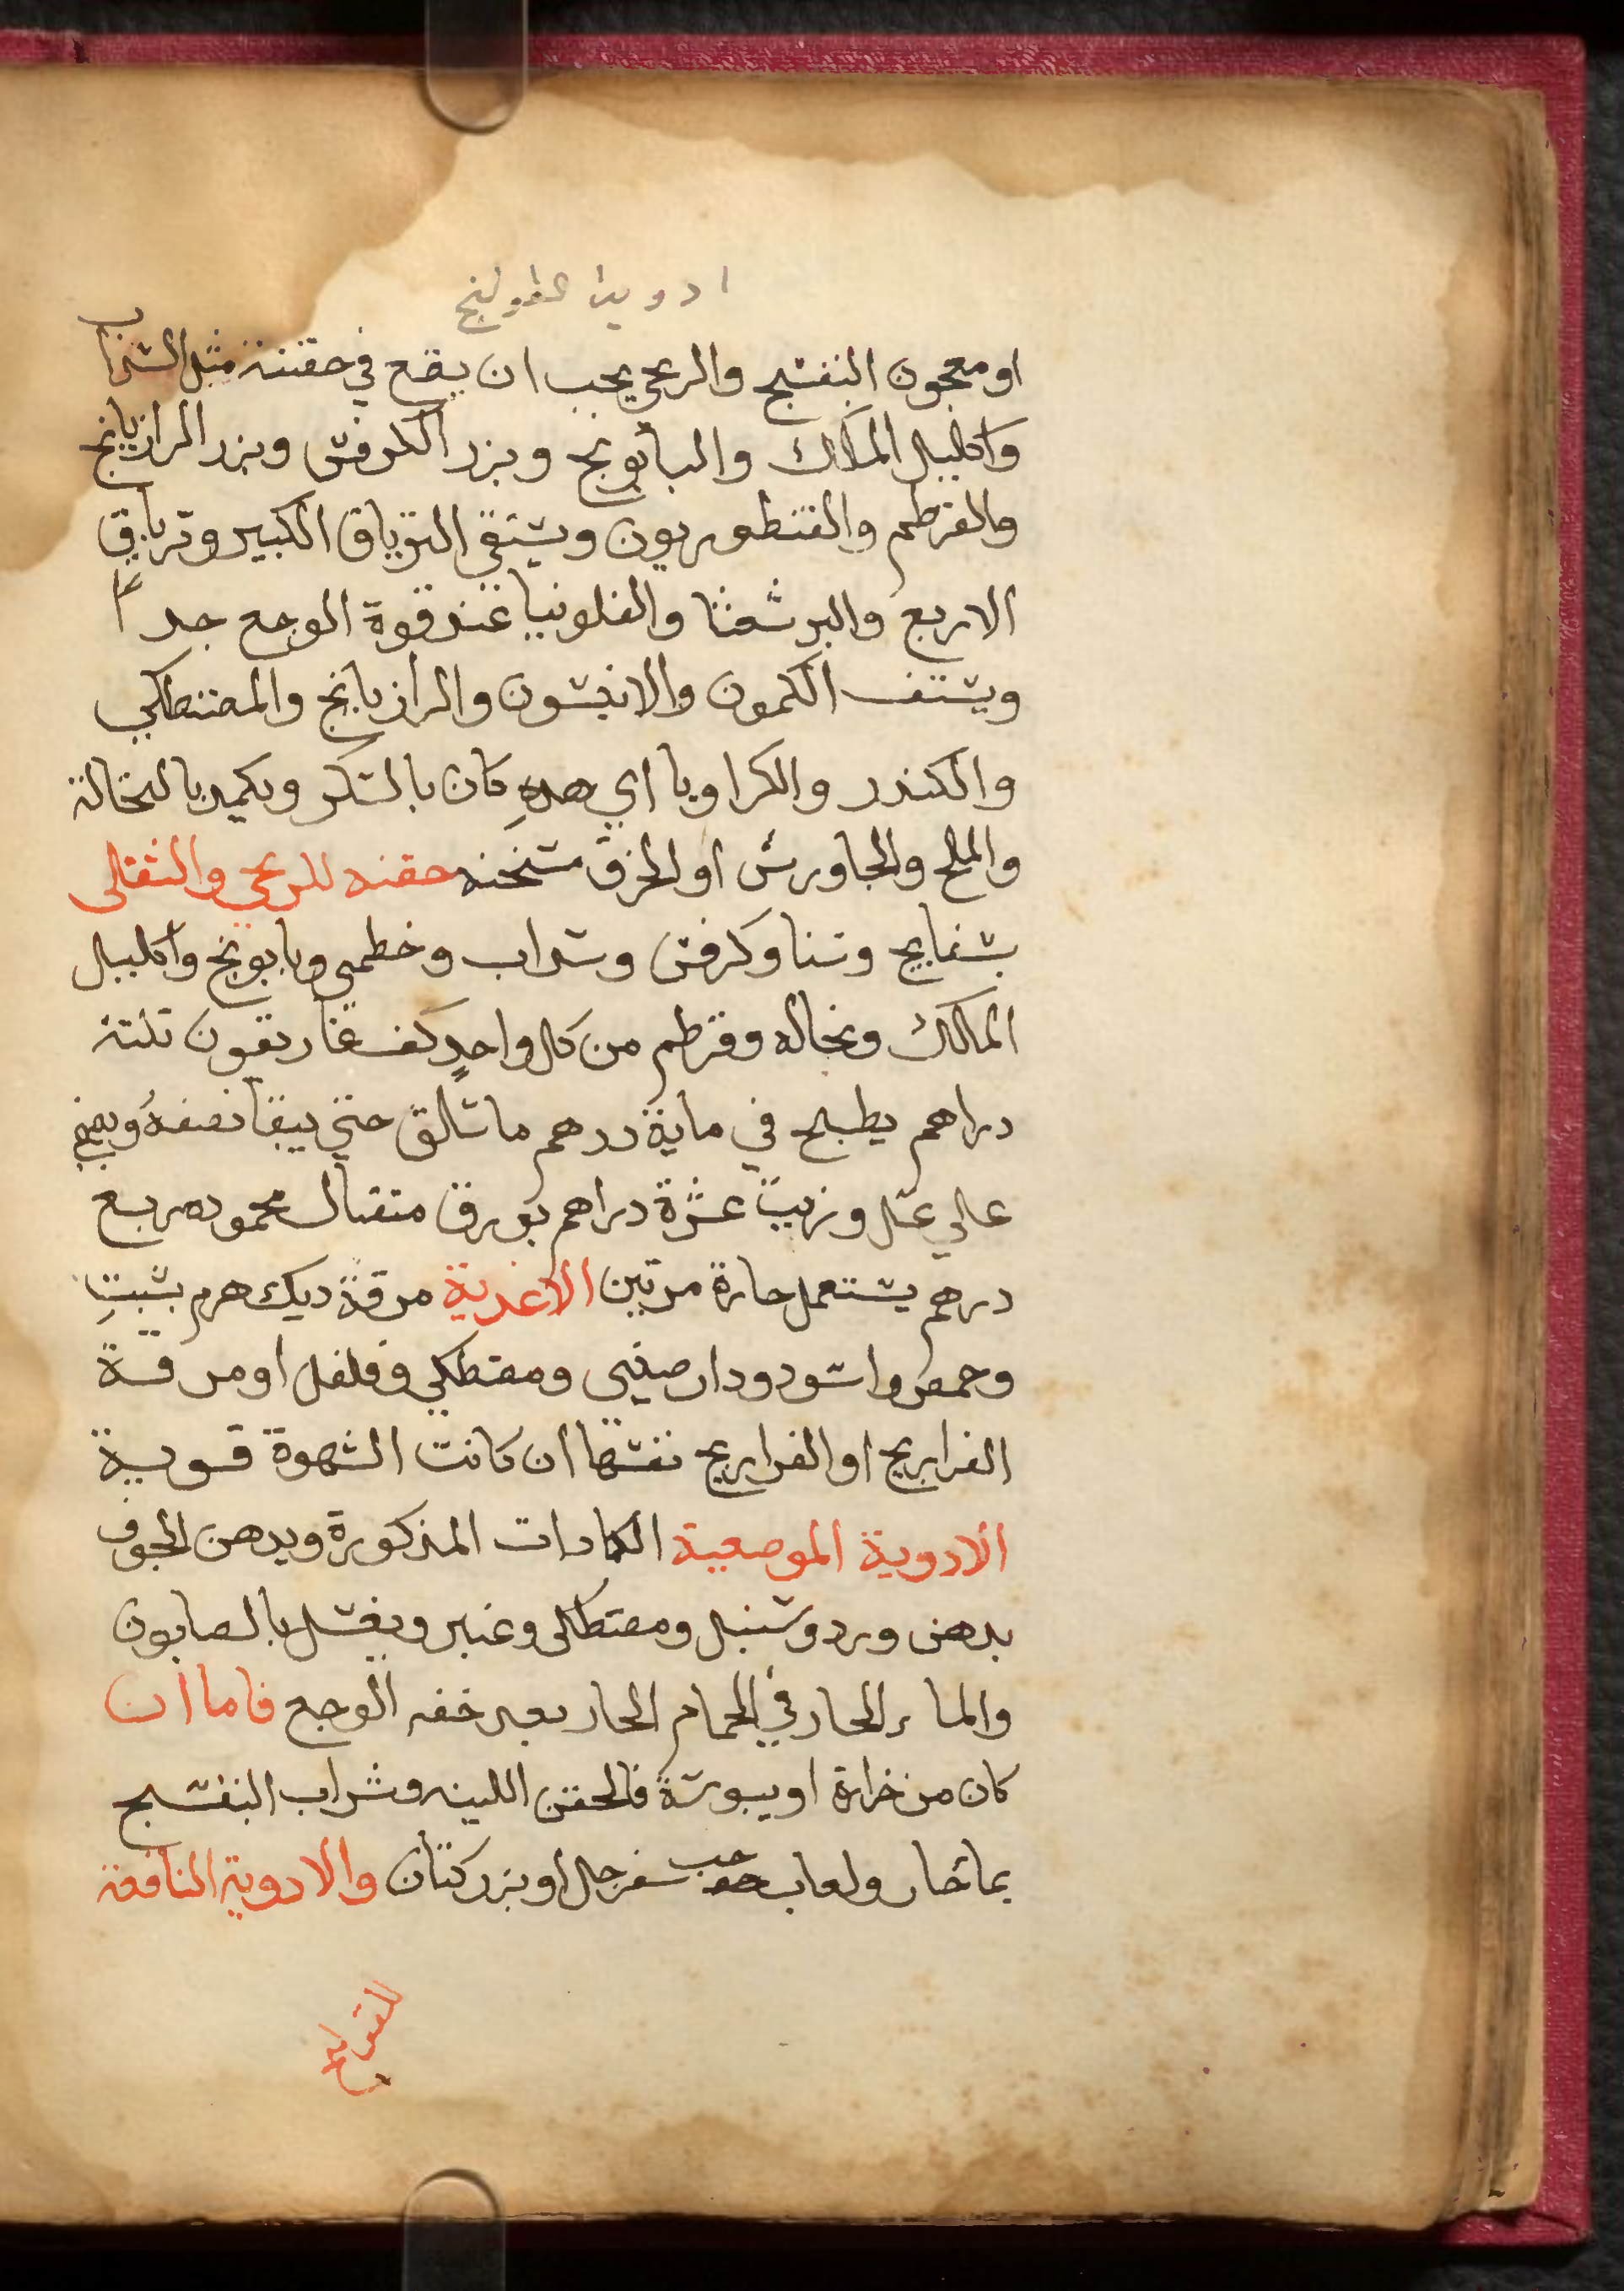 او معجون البنفسج والريحي يجب ان يقع في حقنته مثل السذاب
واكليل الملك والبابونج وبزر الكرفس وبزر الرازيانج
والقرطم والقنطوريون ويسقي الترياق الكبير وترياق
الاربع والبرشعثا والفلونيا عند قوة الوجع جدا
ويستف الكمون والانيسون والرازيانج والمصطكي
والكندر والكراويا اي هده كان بالسكر ويكمد بالنخالة
والملح والجاورس او الخرق مسخنه حقنه للريحي والثقالى
بسفايج وسنا وكرفس وسداب وخطمي وبابونج واكليل
المالك ونخاله وقرطم من كل واحدٍ كف غاريقون تلتة
دراهم يطبخ في ماية درهم ما سالق حتي يبقا نصفهُ ويصفي
عالي عسل وزيت عشرة دراهم بورق متقال محموده ربع
درهم يستعمل حارة مرتين الاغدية مرقة ديك هرم بشبتٍ
وحمص اسود ودارصيني ومصطكي وفلفل او مرقة
الفراريج او الفراريج نفسها ان كانت الشهوة قوية
الادوية الموضعية الكمادات المذكورة ويدهن الجوف
بدهن ورد وسنبل ومصطكى وعنبر ويغسل بالصابون
والماء الحار في الحمام الحار بعد خفه الوجع فاما ان
كان من حرارة او يبوسة فالحقن اللينه وشراب البنفسج
بماحار ولعاب حب سفرجل او بزر كتان والادوية النافعة
للقولنج